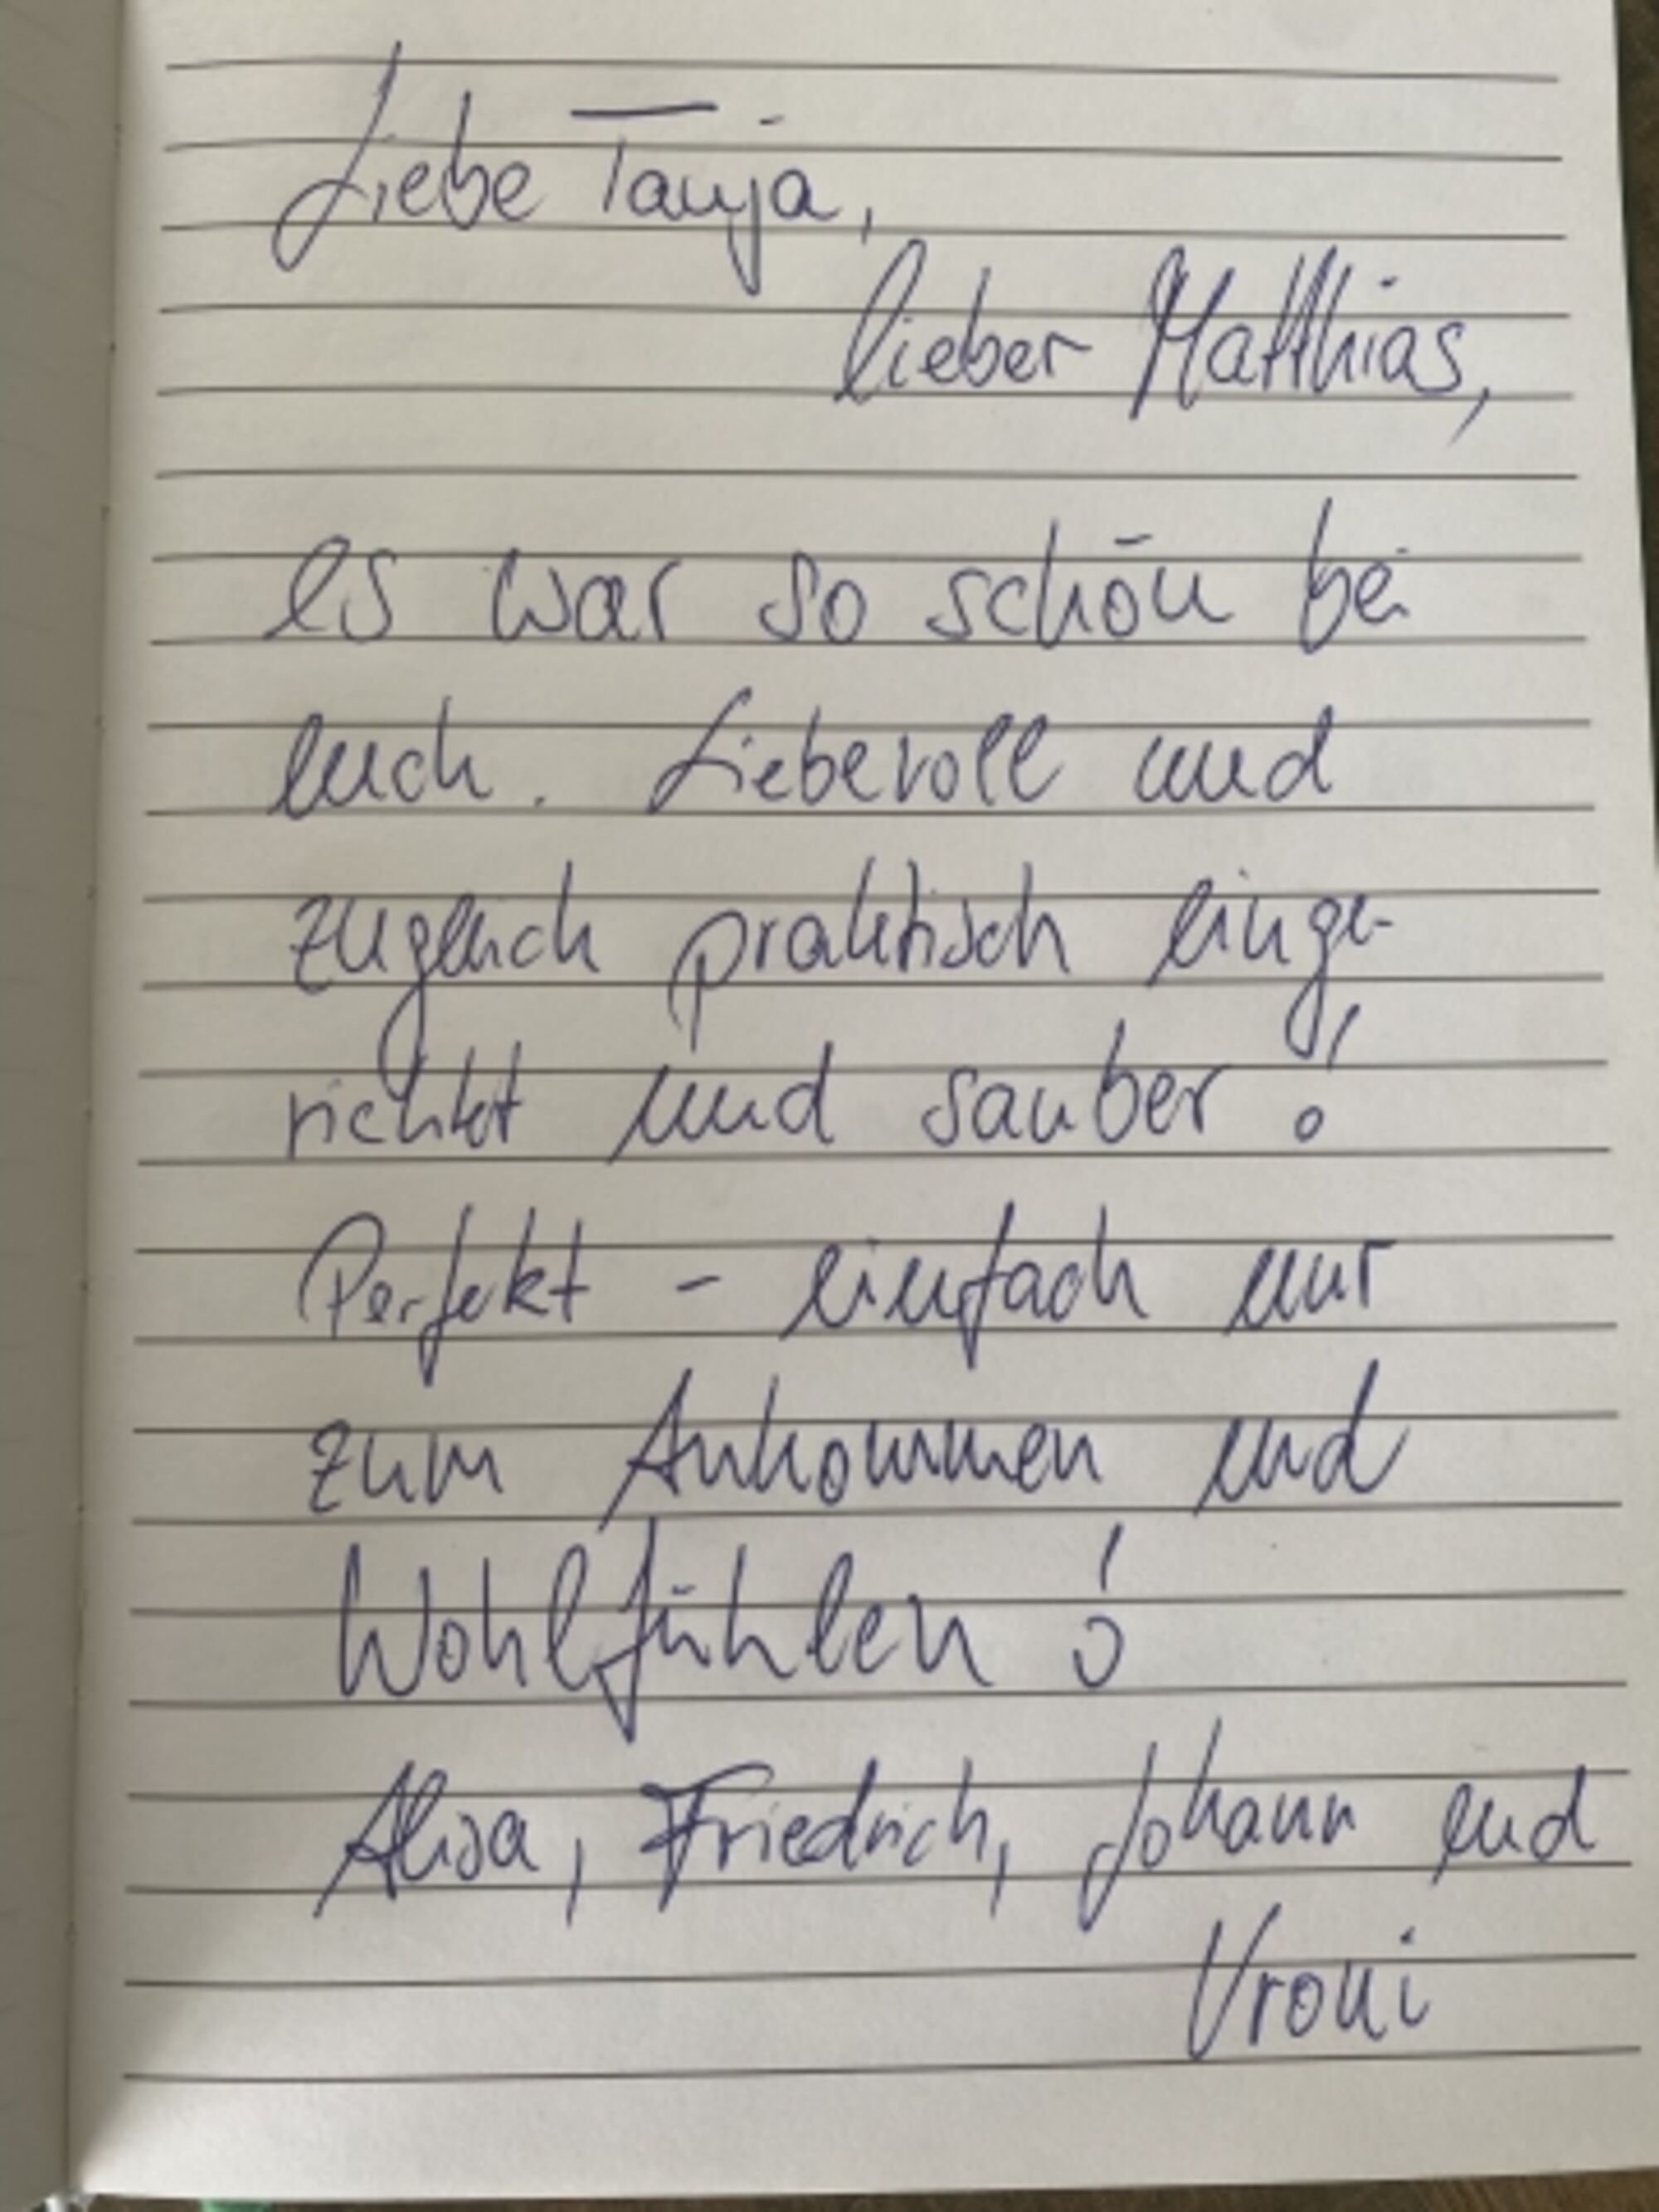 Liebe Tanja,
lieber Matthias,
es war so schön bei
euch. Liebevoll und
zugleich praktisch einge-
richtet und sauber!
Perfekt - einfach nur
zum Ankommen und
Wohlfühlen!
Alisa, Friedrich, Johann und
Vroni